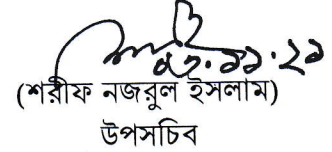 ০৩.১১.২১
(শরীফ নজরুল ইসলাম)
উপসচিব